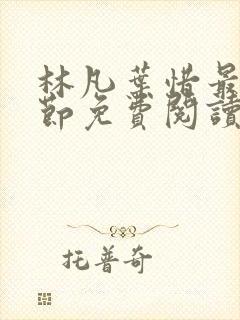 林凡葉惜最
節免費閱讀
托普奇